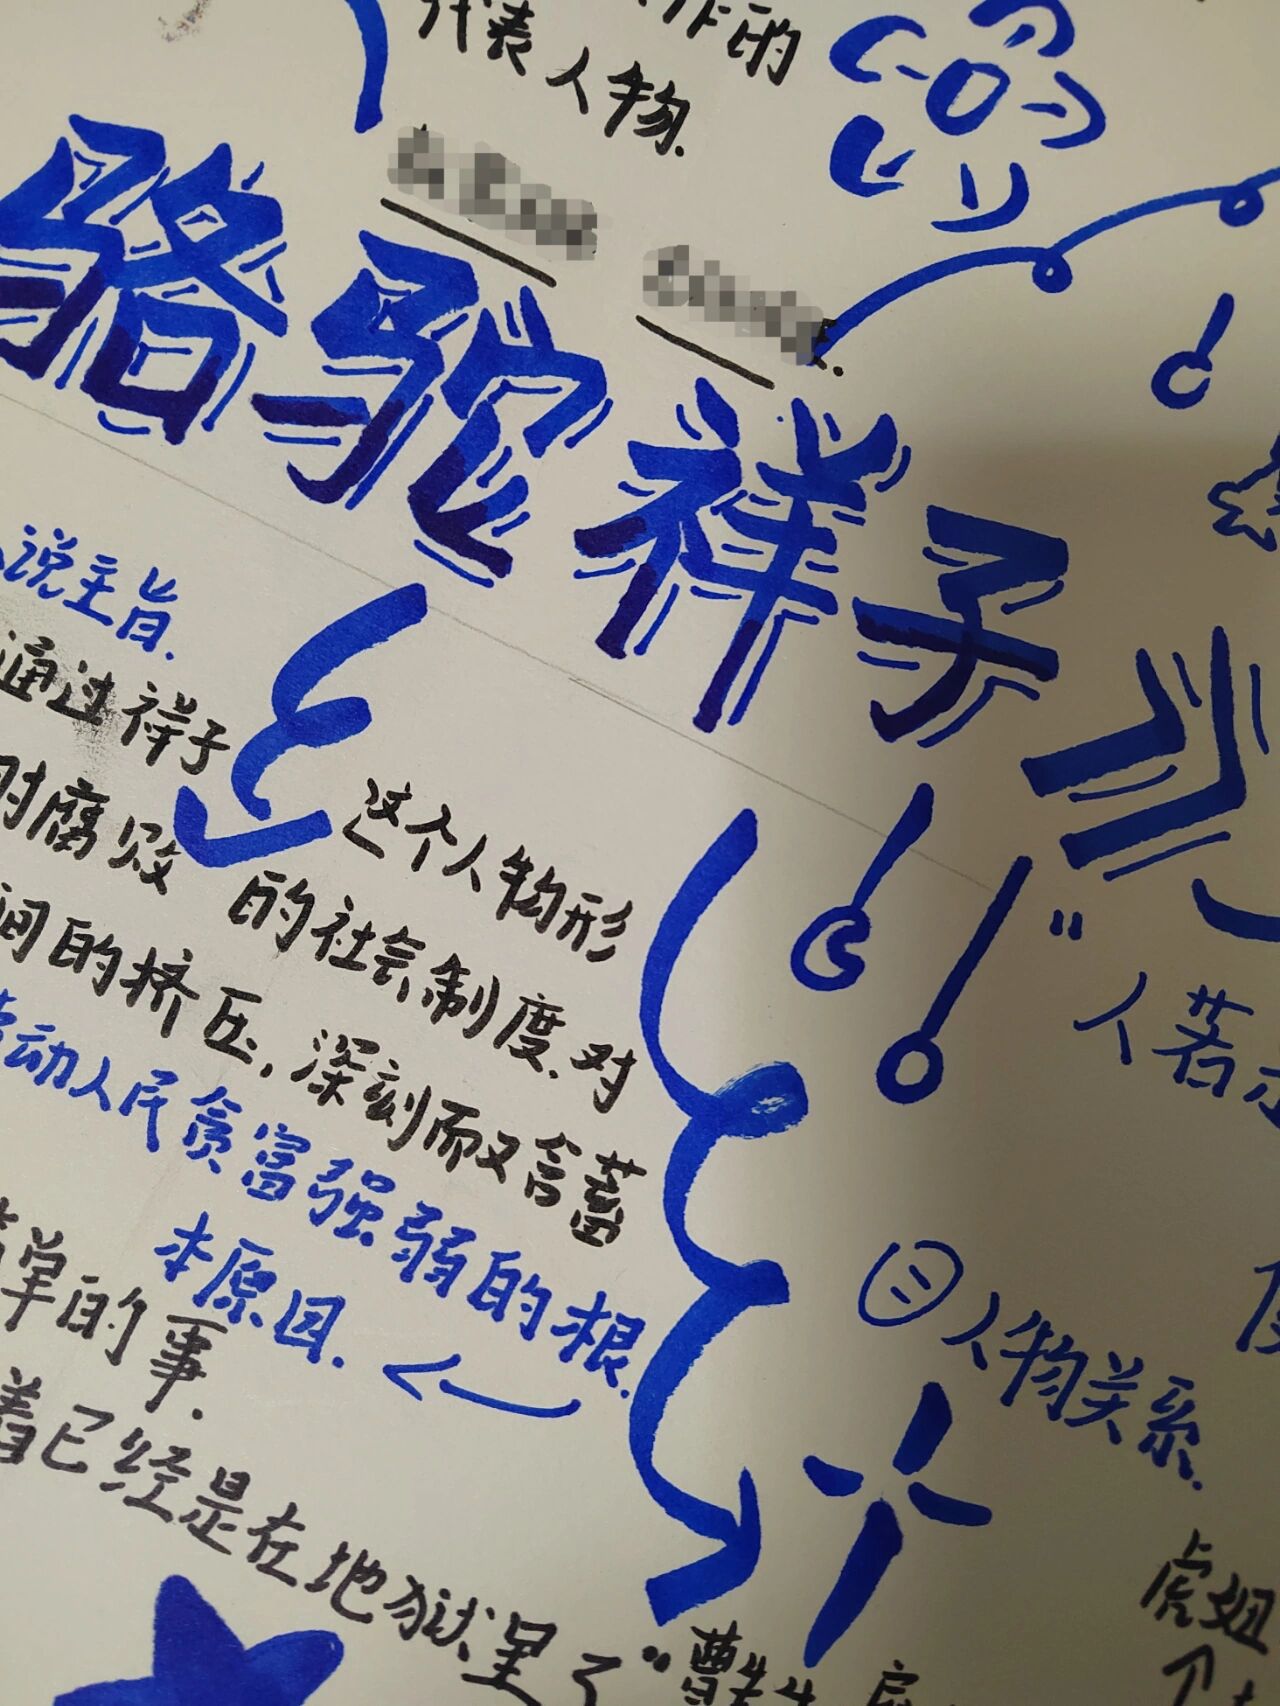 作的
代表人物.
骆驼祥子》
说主旨.
通过祥子这个人物形
对腐败的社会制度.对
间的挤压,深刻而又含蓄
劳动人民贫富强弱的根
本原因.
单的事.
着已经是在地狱里了"
"人若
三人物关系.
虎妞
曹先生